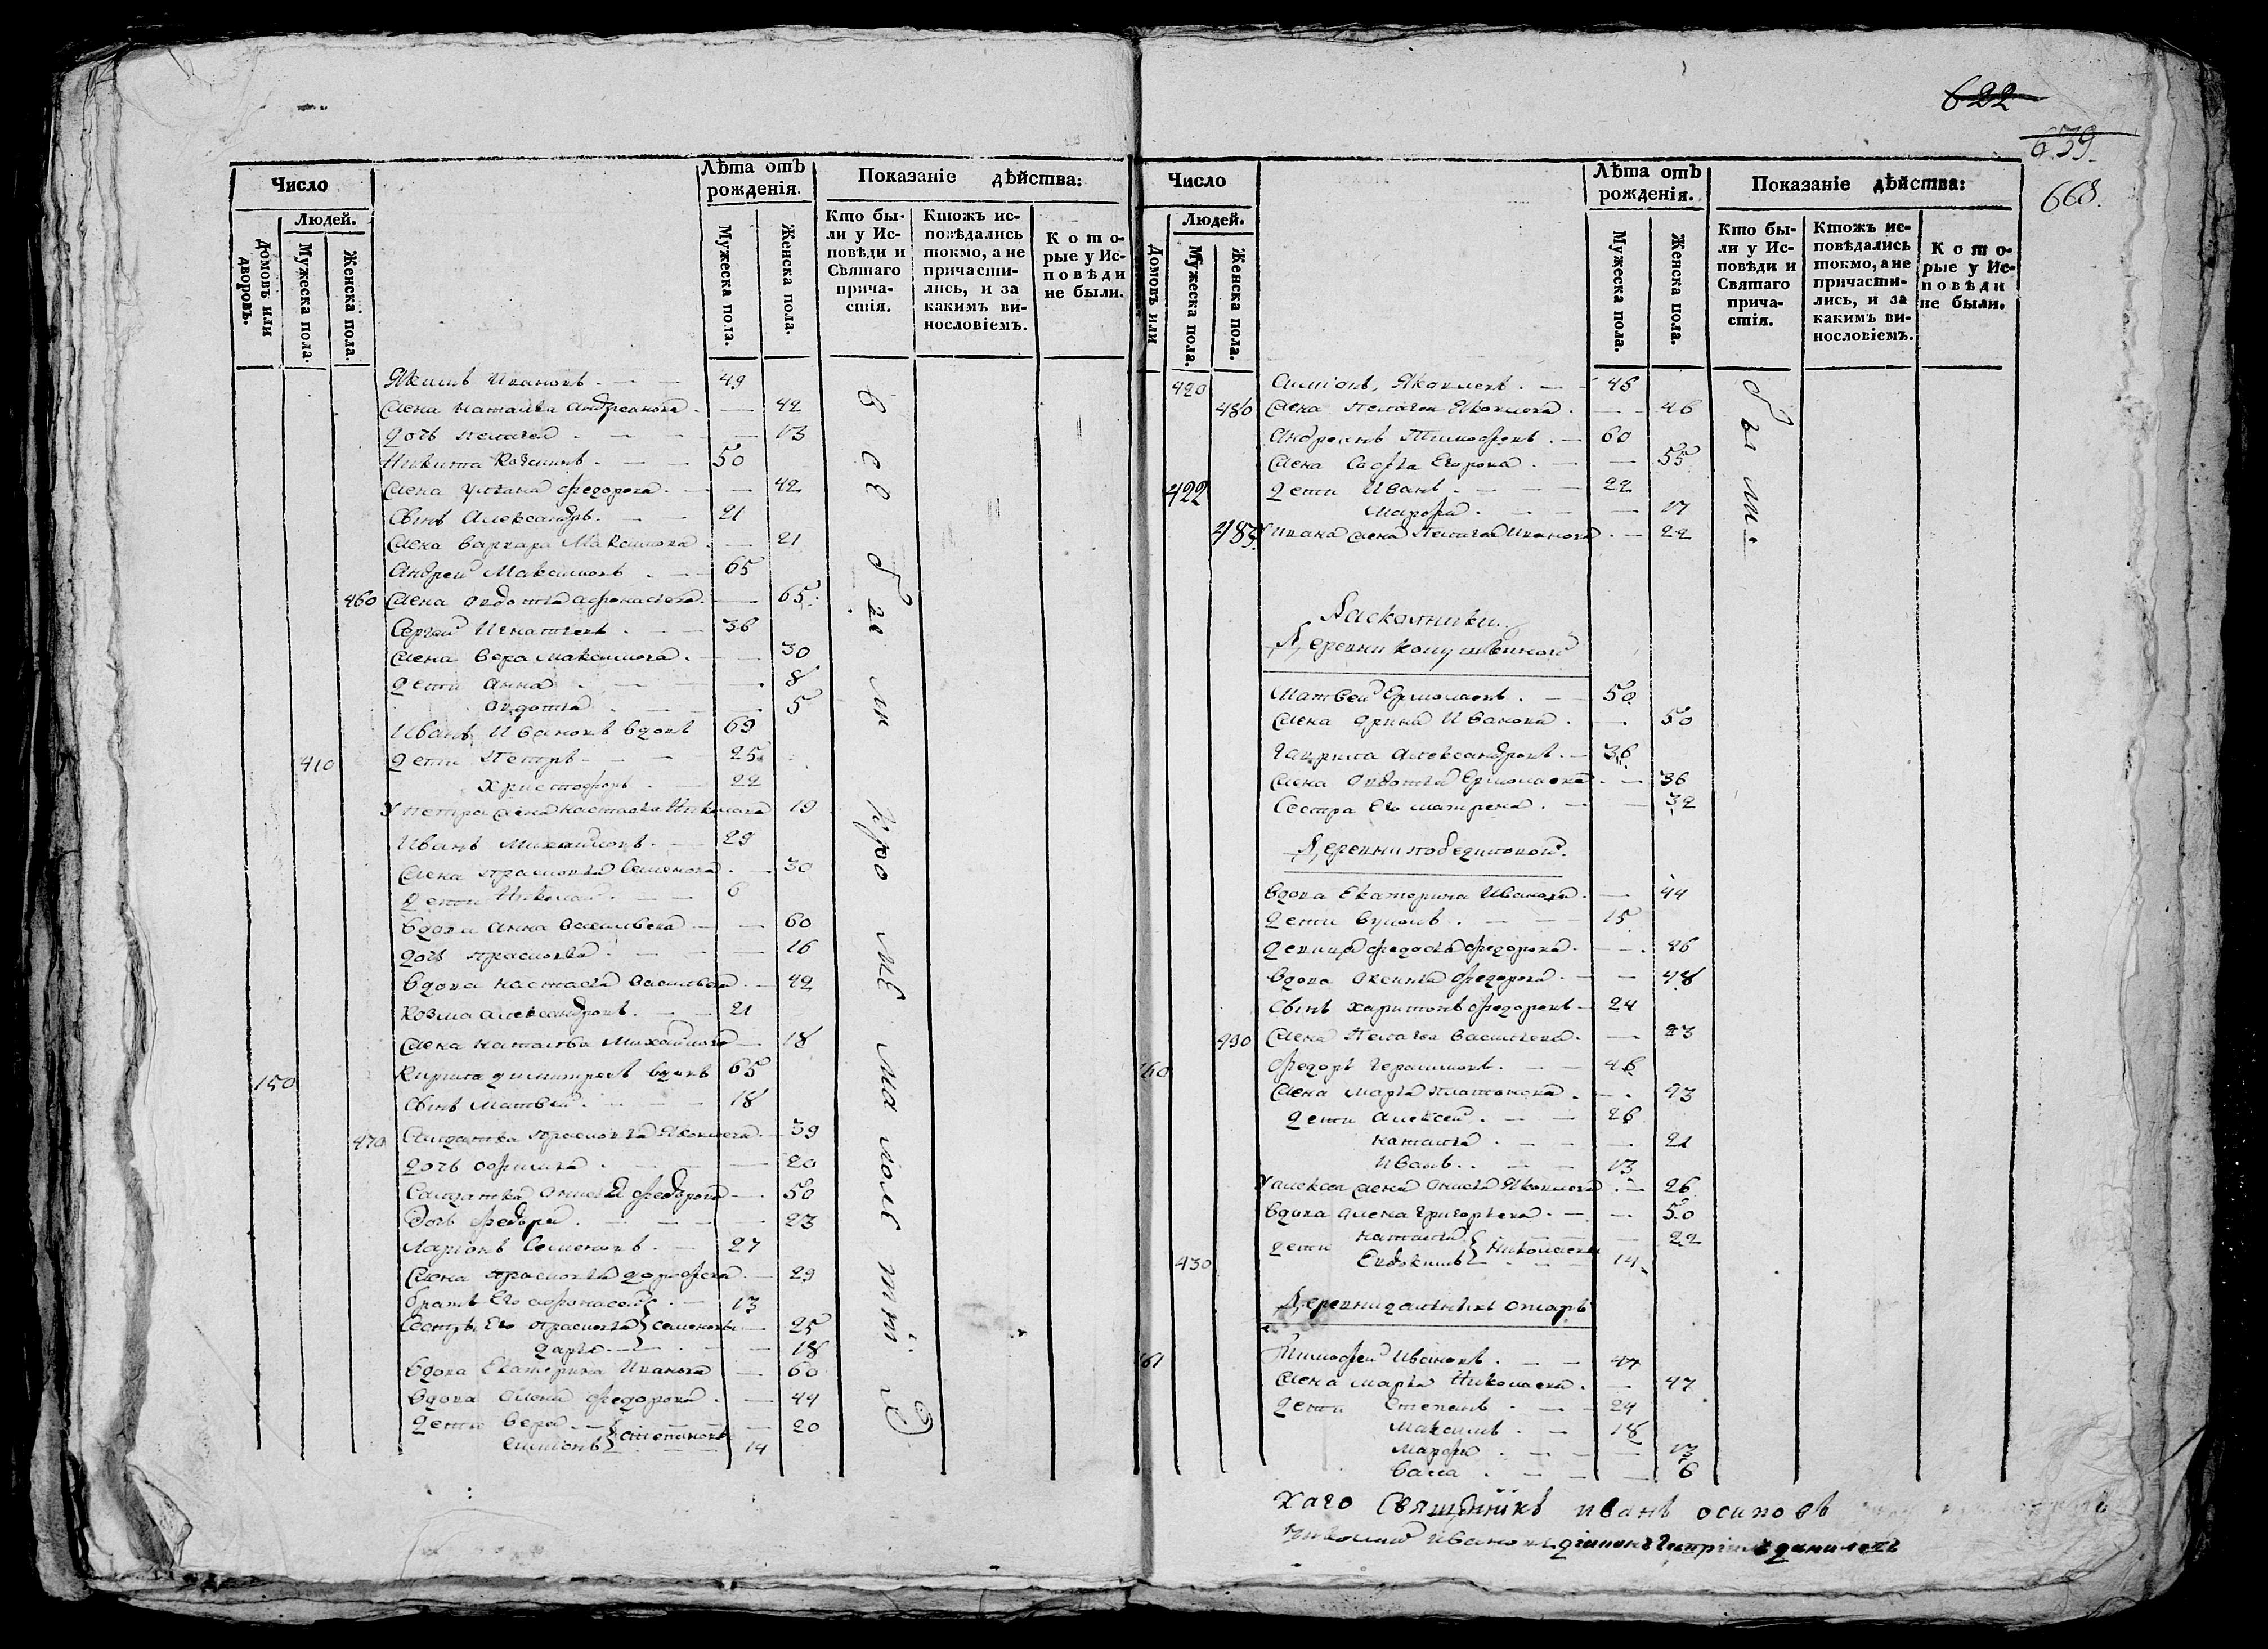 622
639.
668.
Число
Лѣта отъ рожденія.
Показаніе дѣйства:
Людей.
Домовъ или дворовъ.
Мужеска пола.
Женска пола.
Мужеска пола.
Женска пола.
Кто бы-
ли у Ис-
повѣди и
Святаго
прича-
стія.
Ктожъ ис-
повѣдались
токмо, а не
причасти-
лись, и за
какимъ ви-
нословіемъ.
К о т о-
рые у Ис-
п о в ѣ д и
не были.
Якимъ Ивановъ 49
Жена Наталья Андреянова 42
Дочь Пелагея 13
Никита Козминъ 50
Жена Ульяна Федорова 42
Сынъ Александръ 21
Жена Варвара Максимова 21
Андрей Максимовъ 65
460 Жена Авдотья Афонасьева 65
Сергей Игнатьевъ 36
Жена Вера Максимова 30
Дети Анна 8
Авдотья 5
Иванъ Ивановъ вдовъ 69
410 Дети Петръ 25
Христофоръ 22
У Петра жена Настасья Николаева 19
Иванъ Михайловъ 29
Жена Прасковья Семенова 30
Дети Николай 6
Вдова Анна Васильева 60
Дочь Прасковья 16
Вдова Настасья Васильева 42
Козма Александровъ 21
Жена Наталья Михайлова 18
150 Кирила Димитревъ вдовъ 65
Сынъ Матвей 18
470 Салдатка Прасковья Яковлева 39
Дочь Офимья 20
Салдатка Онисья Федорова 50
Дочь Федора 23
Ларионъ Семеновъ 27
Жена Прасковья Дорофеева 29
Братъ Его Афонасей 13
Сестры Его Прасковья Семеновы 25
Дарья 18
Вдова Екатерина Иванова 60
Вдова Алена Федорова 44
Дети Вера 20
Симионъ Степановы 14
Число
Лѣта отъ рожденія.
Показаніе дѣйства:
Людей.
Домовъ или
Мужеска пола.
Женска пола.
Мужеска пола.
Женска пола.
Кто бы-
ли у Ис-
повѣди и
Святаго
прича-
стія.
Ктожъ ис-
повѣдались
токмо, а не
причасти-
лись, и за
какимъ ви-
нословіемъ.
К о т о-
рые у Ис-
п о в ѣ д и
не были.
были
420 Симіонъ Яковлевъ 45
480 Жена Пелагея Яковлева 46
Андреянъ Тимофеевъ 60
Жена Софья Егорова 55
422 Дети Иванъ 22
Марфа 17
483 У Ивана жена Пелагея Иванова 22
Раскольники
Деревни
Матвей Ермолаевъ 50
Жена Арина Иванова 50
Гаврила Александровъ 36
Жена Авдотья Ермолаева 36
Сестра Его Матрена 32
Деревни Победимовой
Вдова Екатерина Иванова 44
Дети Вуколъ 15
Девица Федосья Федорова 26
Вдова Оксинья Федорова 48
Сынъ Харитонъ Федоровъ 24
490 Жена Пелагея Васильева 23
160 Федоръ Герасимовъ 46
Жена Марья Платонова 43
Дети Алексей 26
Наталья 21
Иванъ 13
У Алексея жена Онисья Яковлева 26
Вдова Алена Григорьева 50
Дети Наталья Николаевы 22
430 Евдокимъ 14
Деревни
161 Тимофей Ивановъ 44
Жена Марья Николаева 47
Дети Степанъ 24
Максимъ 18
Марфа 13
Васса 6
хаго Священникъ иванъ осиповъ
Николай Ивановъ діаконъ даниловъ